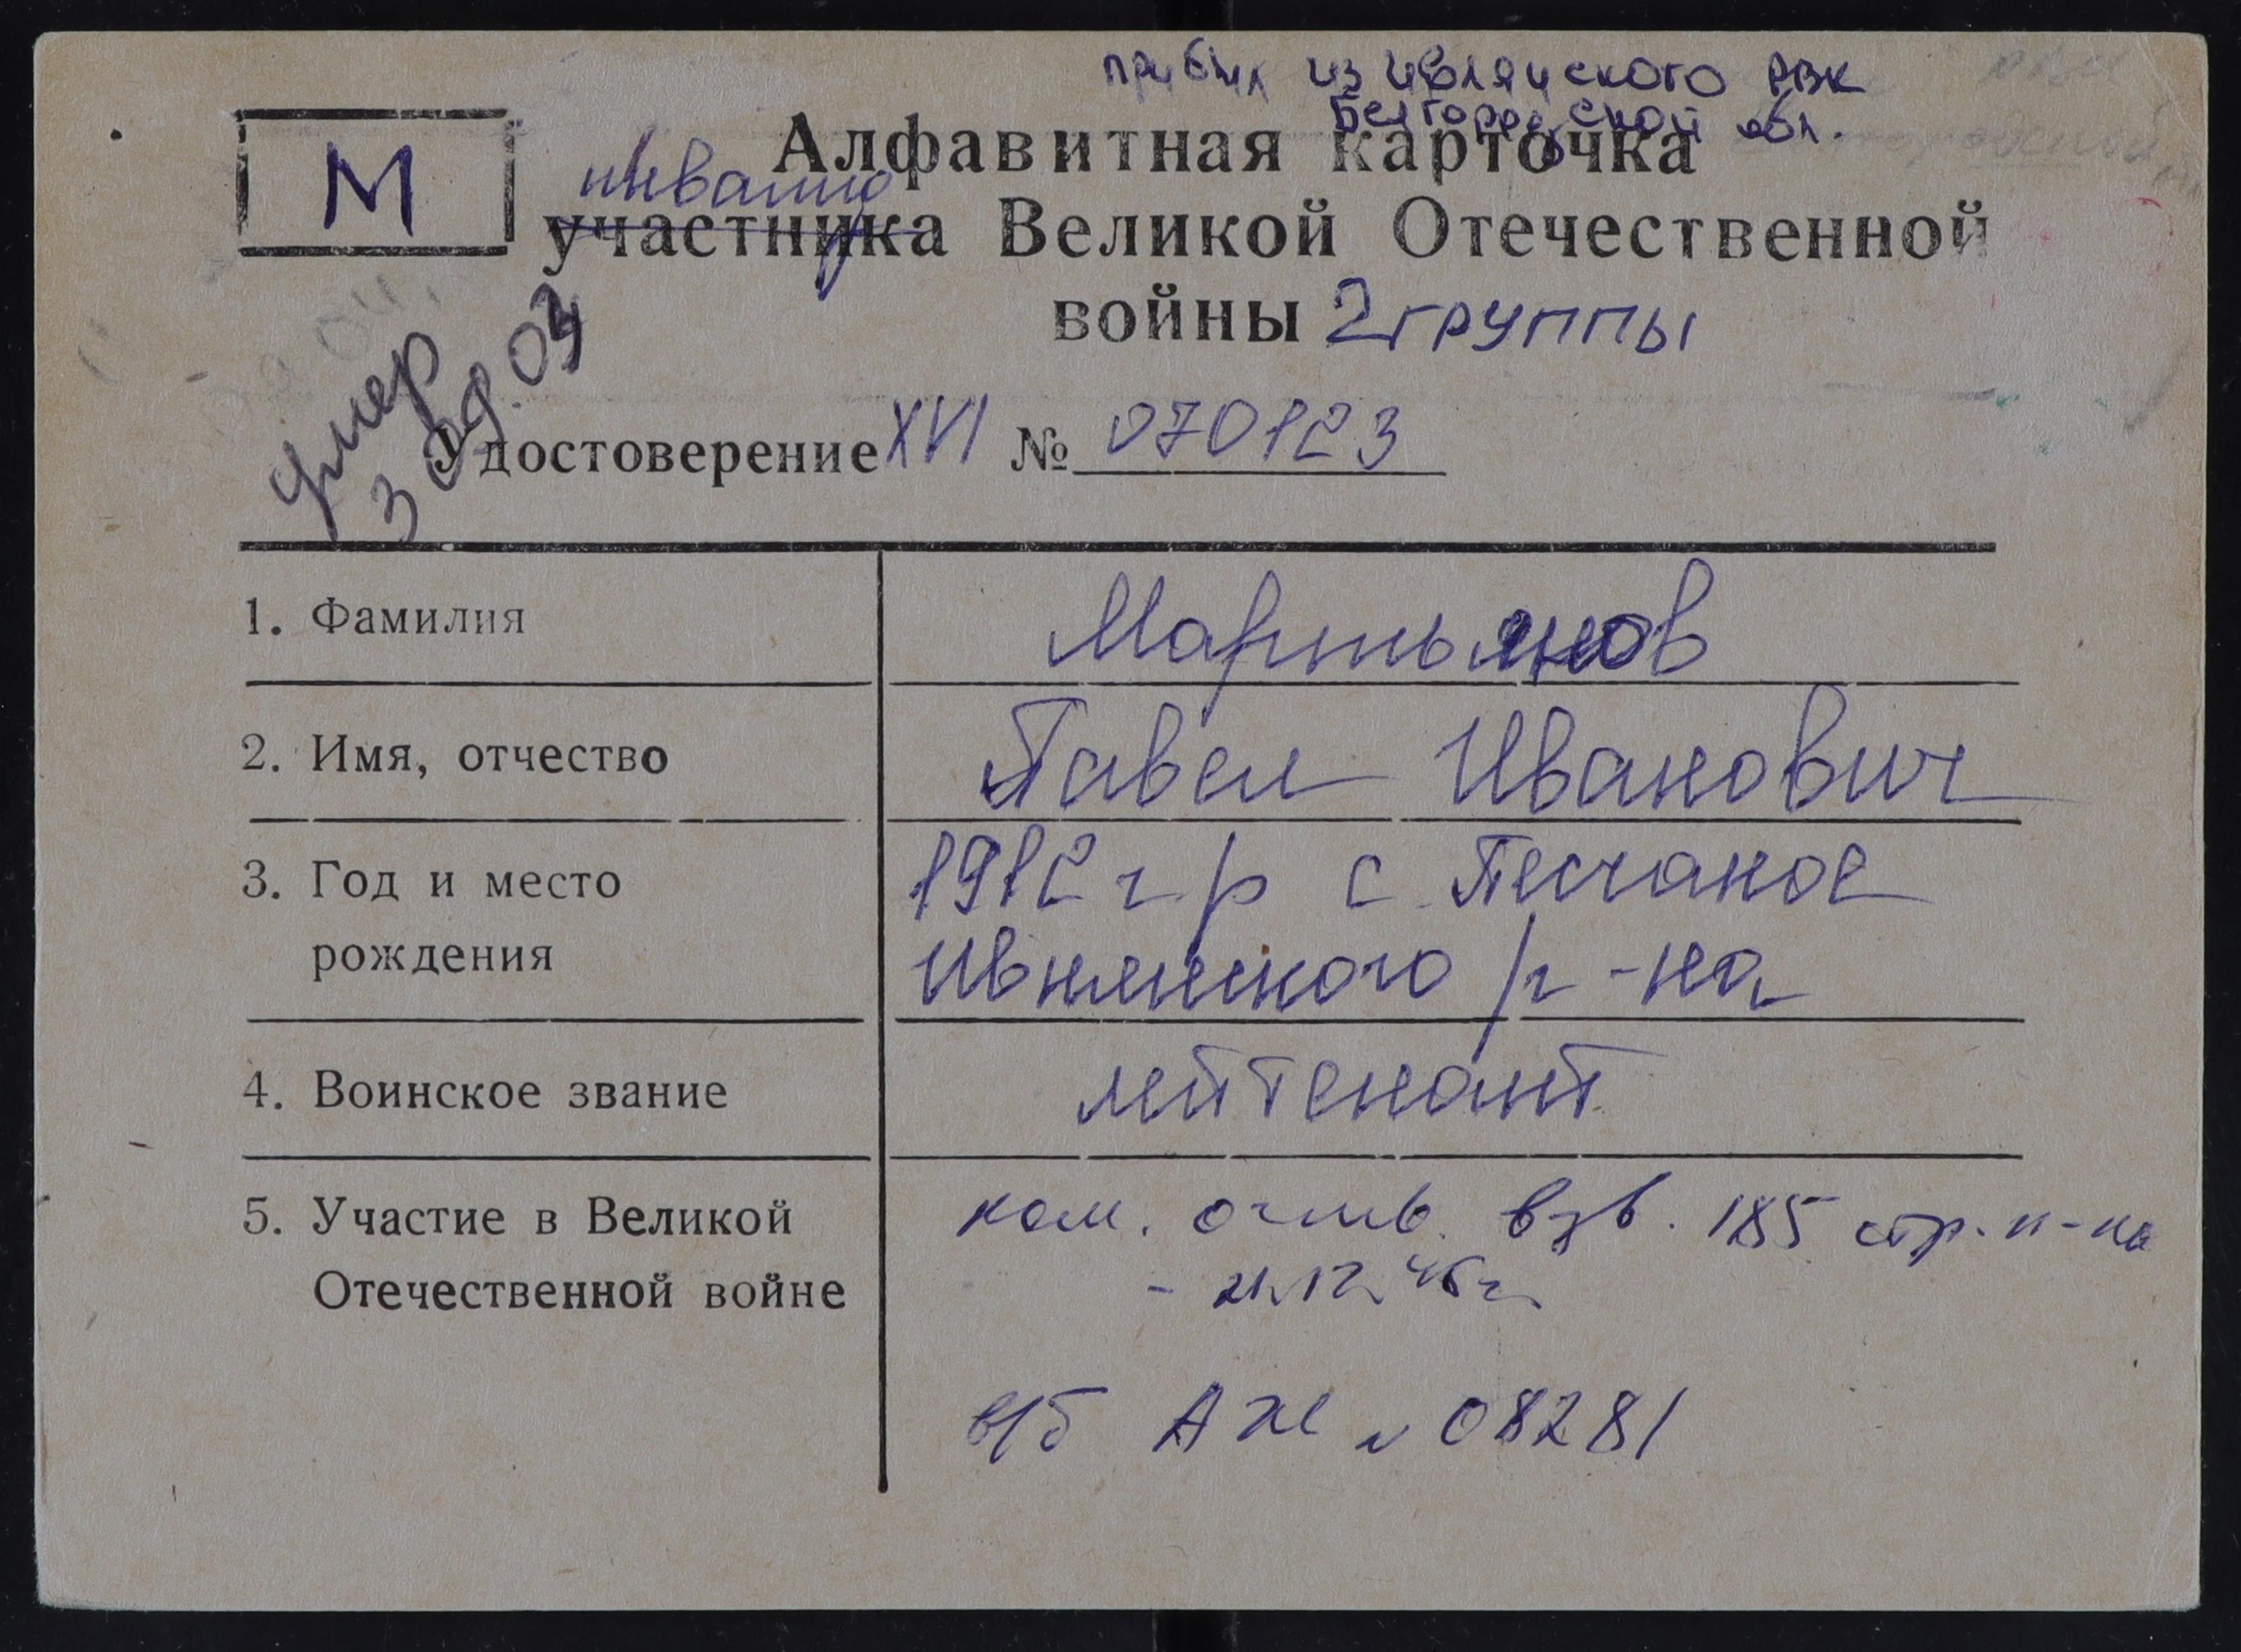 прибыл из Ивнянского РВК
Белгородской обл.
М
Алфавитная карточка
инвалид
участника Великой Отечественной
войны 2 группы
умер
3 09.03
Удостоверение XVI № 070123
1. Фамилия
Мартьянов
2. Имя, отчество
Павел Иванович
3. Год и место
рождения
1912 г.р с. Песчаное
Ивнянского р-на
4. Воинское звание
лейтенант
5. Участие в Великой
Отечественной войне
ком. огнев. взв. 185 стр. п-ка
в/б АЖ № 08281